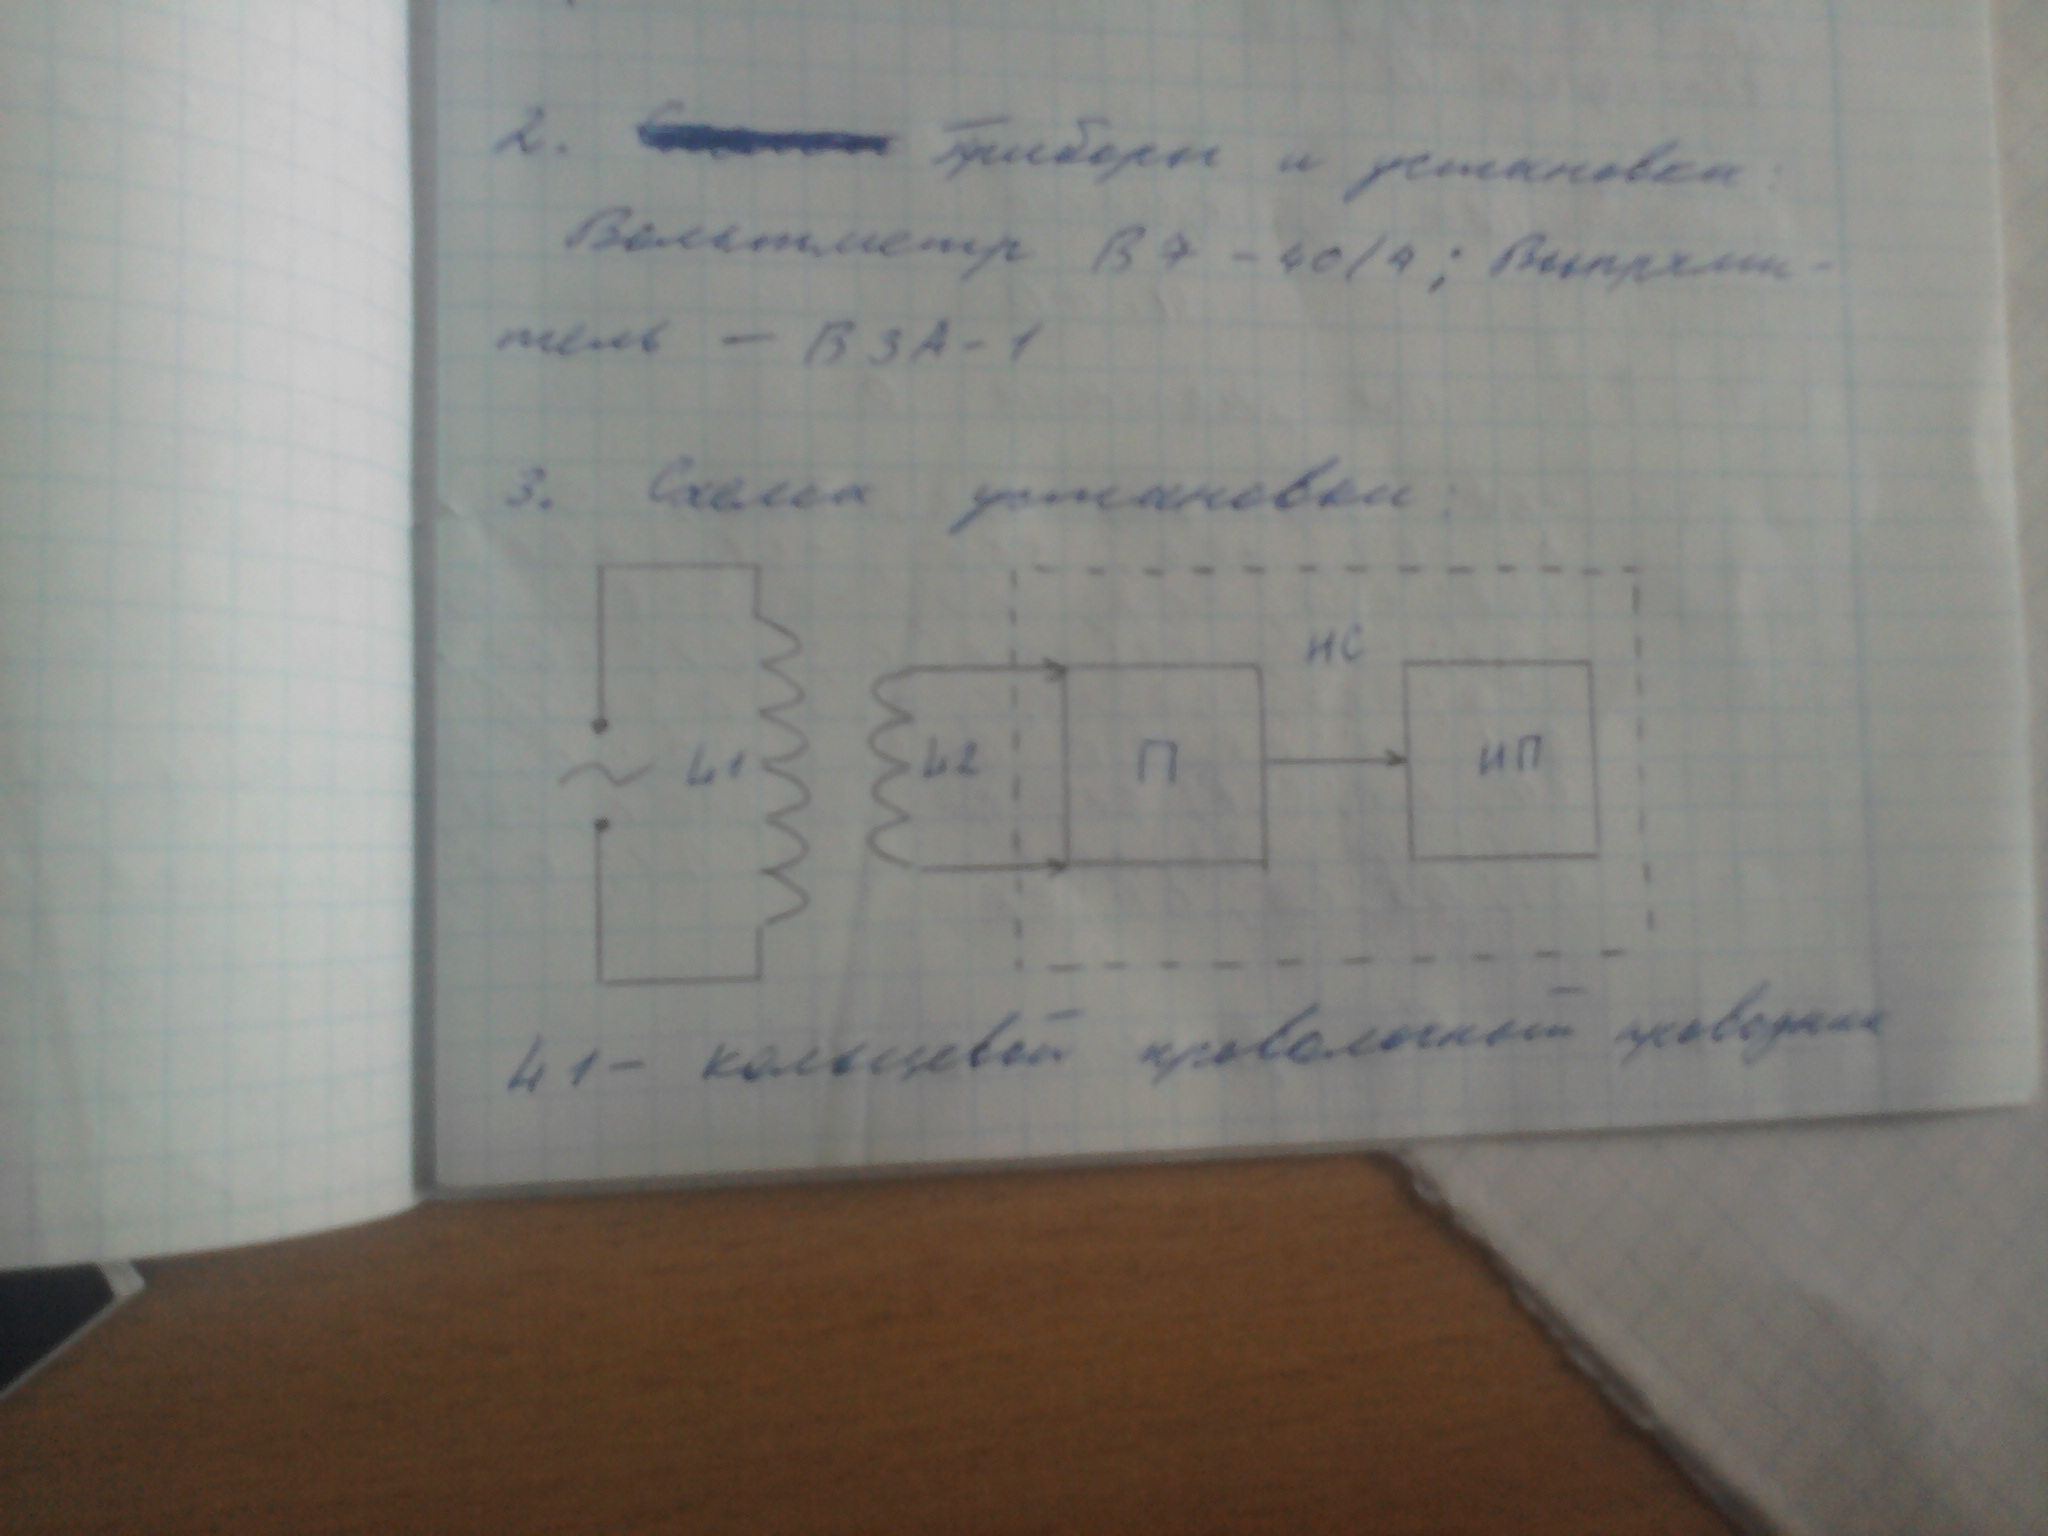 2. Приборы и установки:
Вольтметр В7-40/4; Выпрями-
тель — ВЗА-1
3. Схема установки:
ИС
L1 L2 П ИП
L1 - кольцевой проволочный проводник